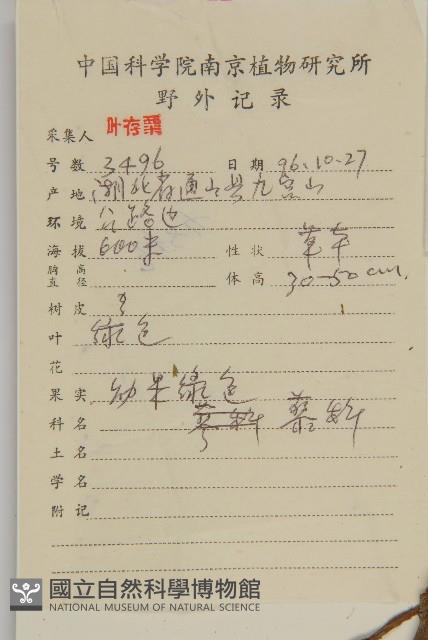 中国科学院南京植物研究所
野外记录
采集人 叶存粟
号数 3496 日期 96.10.27
产地 湖北省通山县九宫山
环境 公路边
海拔 600米 性状 草本
胸高直径 体高 30-50cm.
树皮
叶 绿色
花
果实 幼果绿色
科名 蓼科 藜科
土名
学名
附记
國立自然科學博物館
NATIONAL MUSEUM OF NATURAL SCIENCE